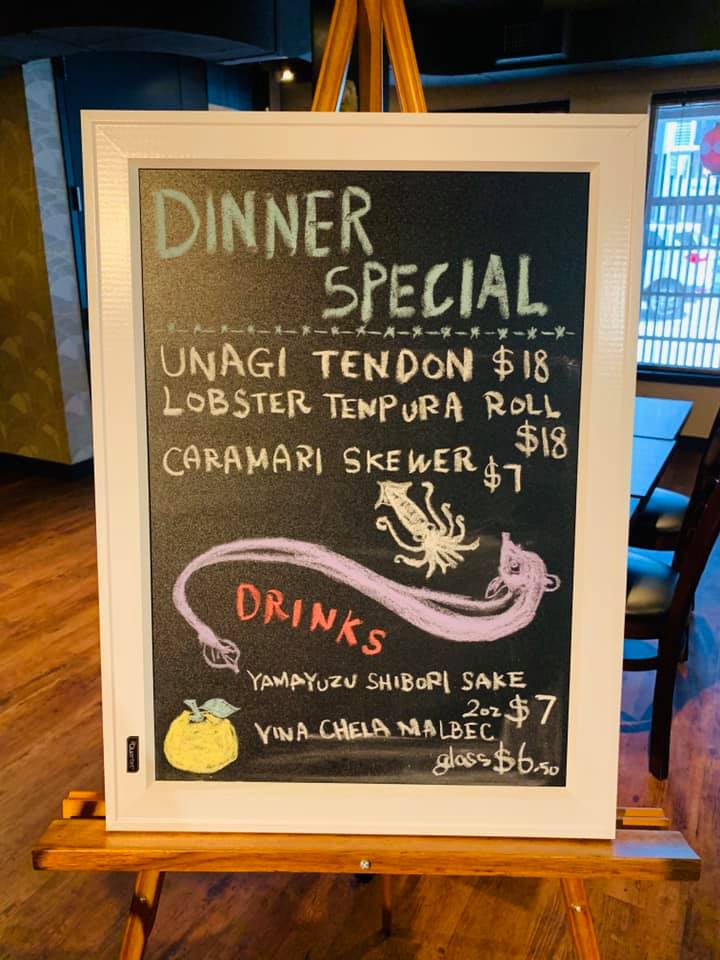 DINNER
SPECIAL
UNAGI TENDON $18
LOBSTER TENPURA ROLL
$18
CARAMARI SKEWER $7
DRINKS
YAMAYUZU SHIBORI SAKE
2oz $7
VINA CHELA MALBEC
glass $6.50